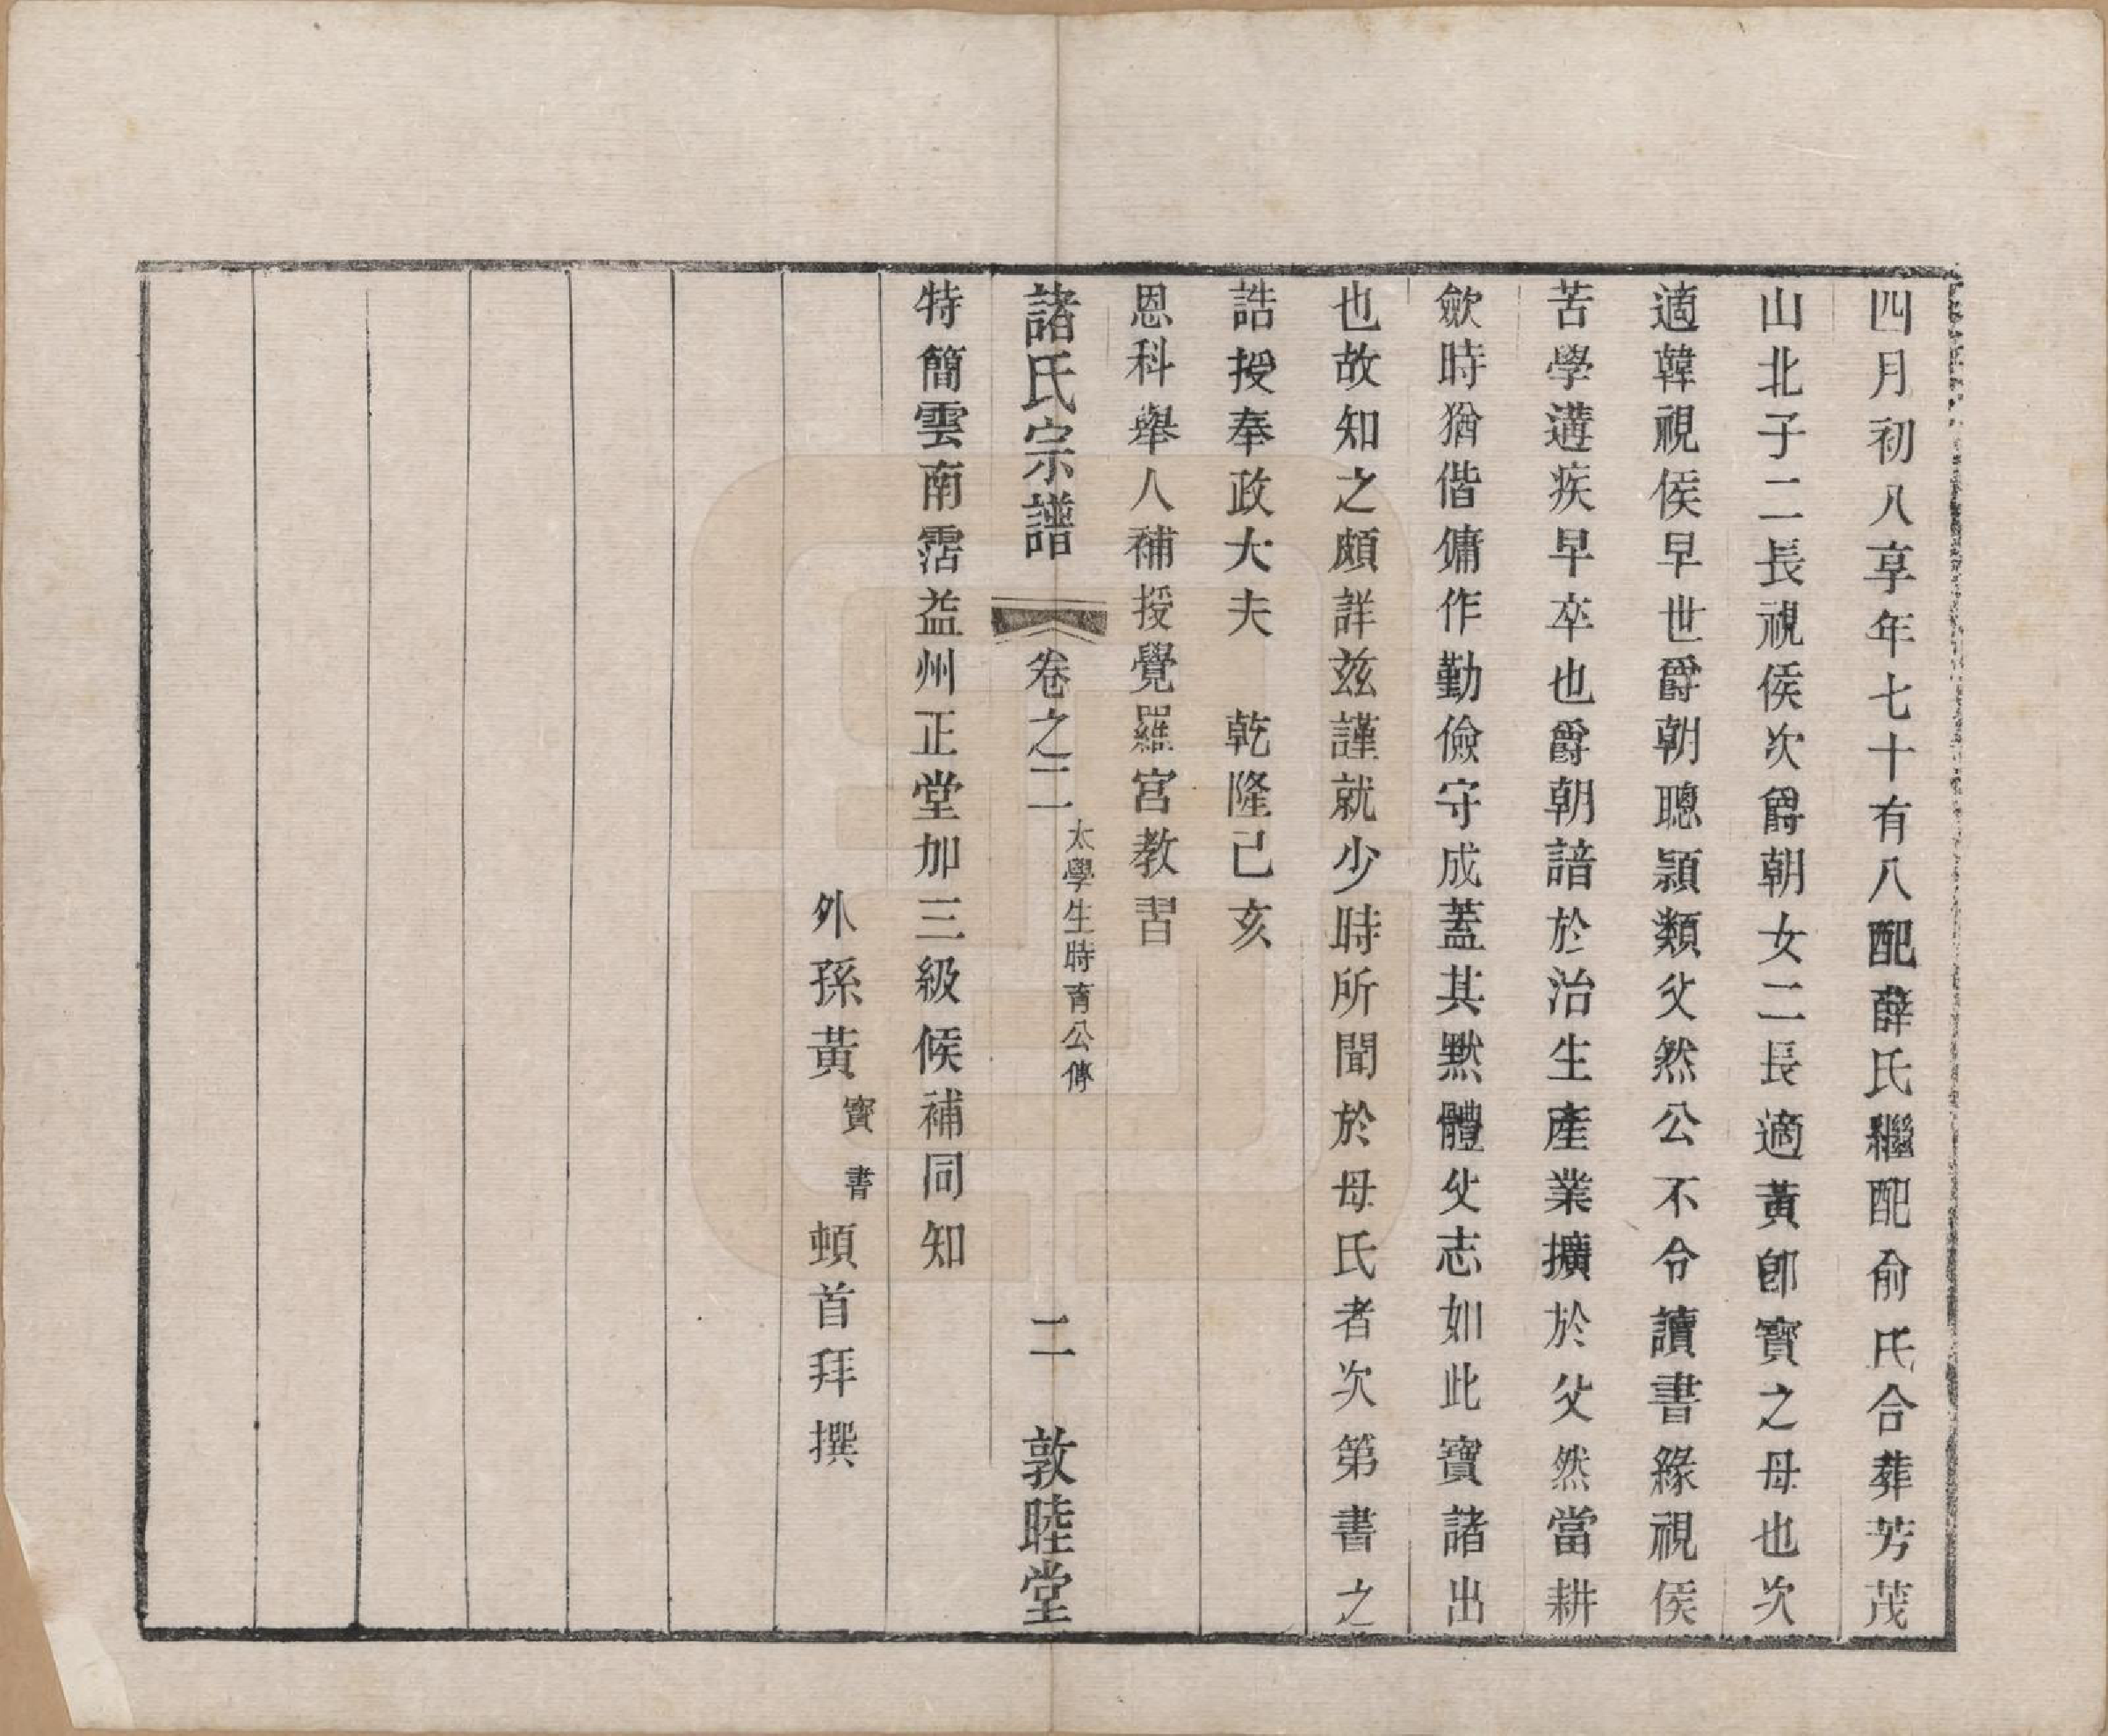 四月初八享年七十有八配薛氏繼配俞氏合葬芳茂
山北子二長視侯次爵朝女二長適黃卽寶之母也次
適韓視侯早世爵朝聰頴類父然公不令讀書緣視侯
苦學遘疾早卒也爵朝諳於治生產業擴於父然當耕
歛時猶偕傭作勤儉守成蓋其默體父志如此寶諸出
也故知之頗詳茲謹就少時所聞於母氏者次第書之
誥授奉政大夫　乾隆己亥
恩科舉人補授覺羅宮教習
諸氏宗譜　卷之二　太學生時育公傳　二　敦睦堂
特簡雲南霑益州正堂加三級候補同知
外孫黃寶書頓首拜撰